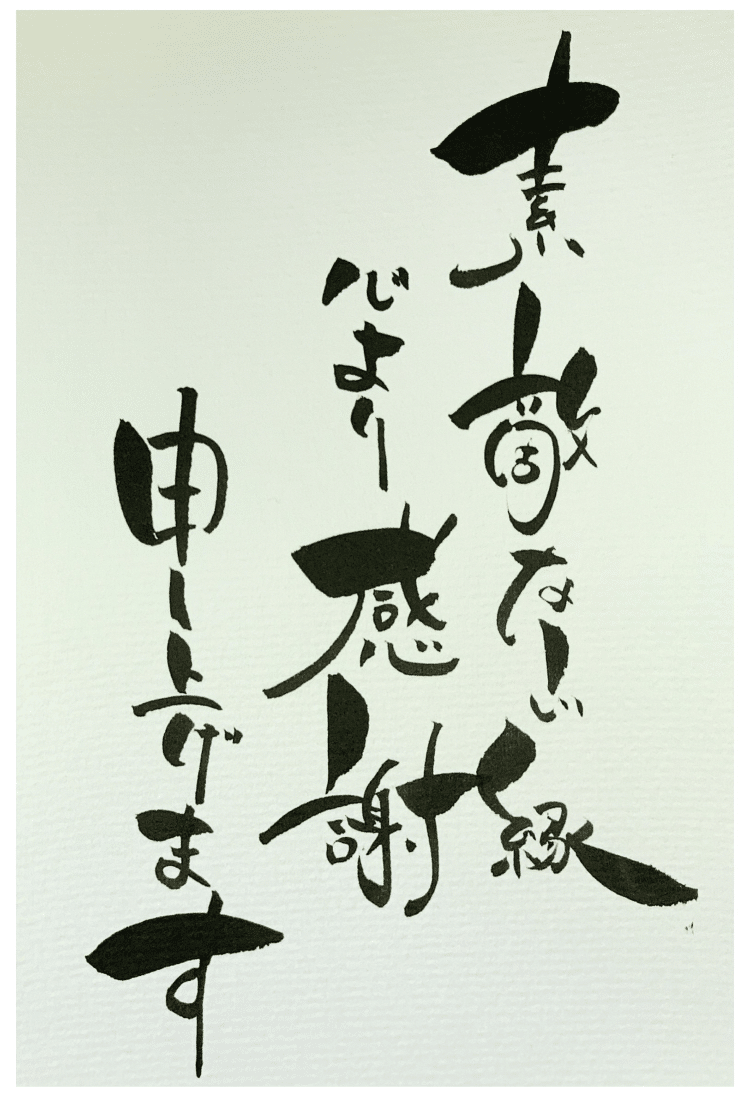 素敵なご縁
心より感謝
申し上げます